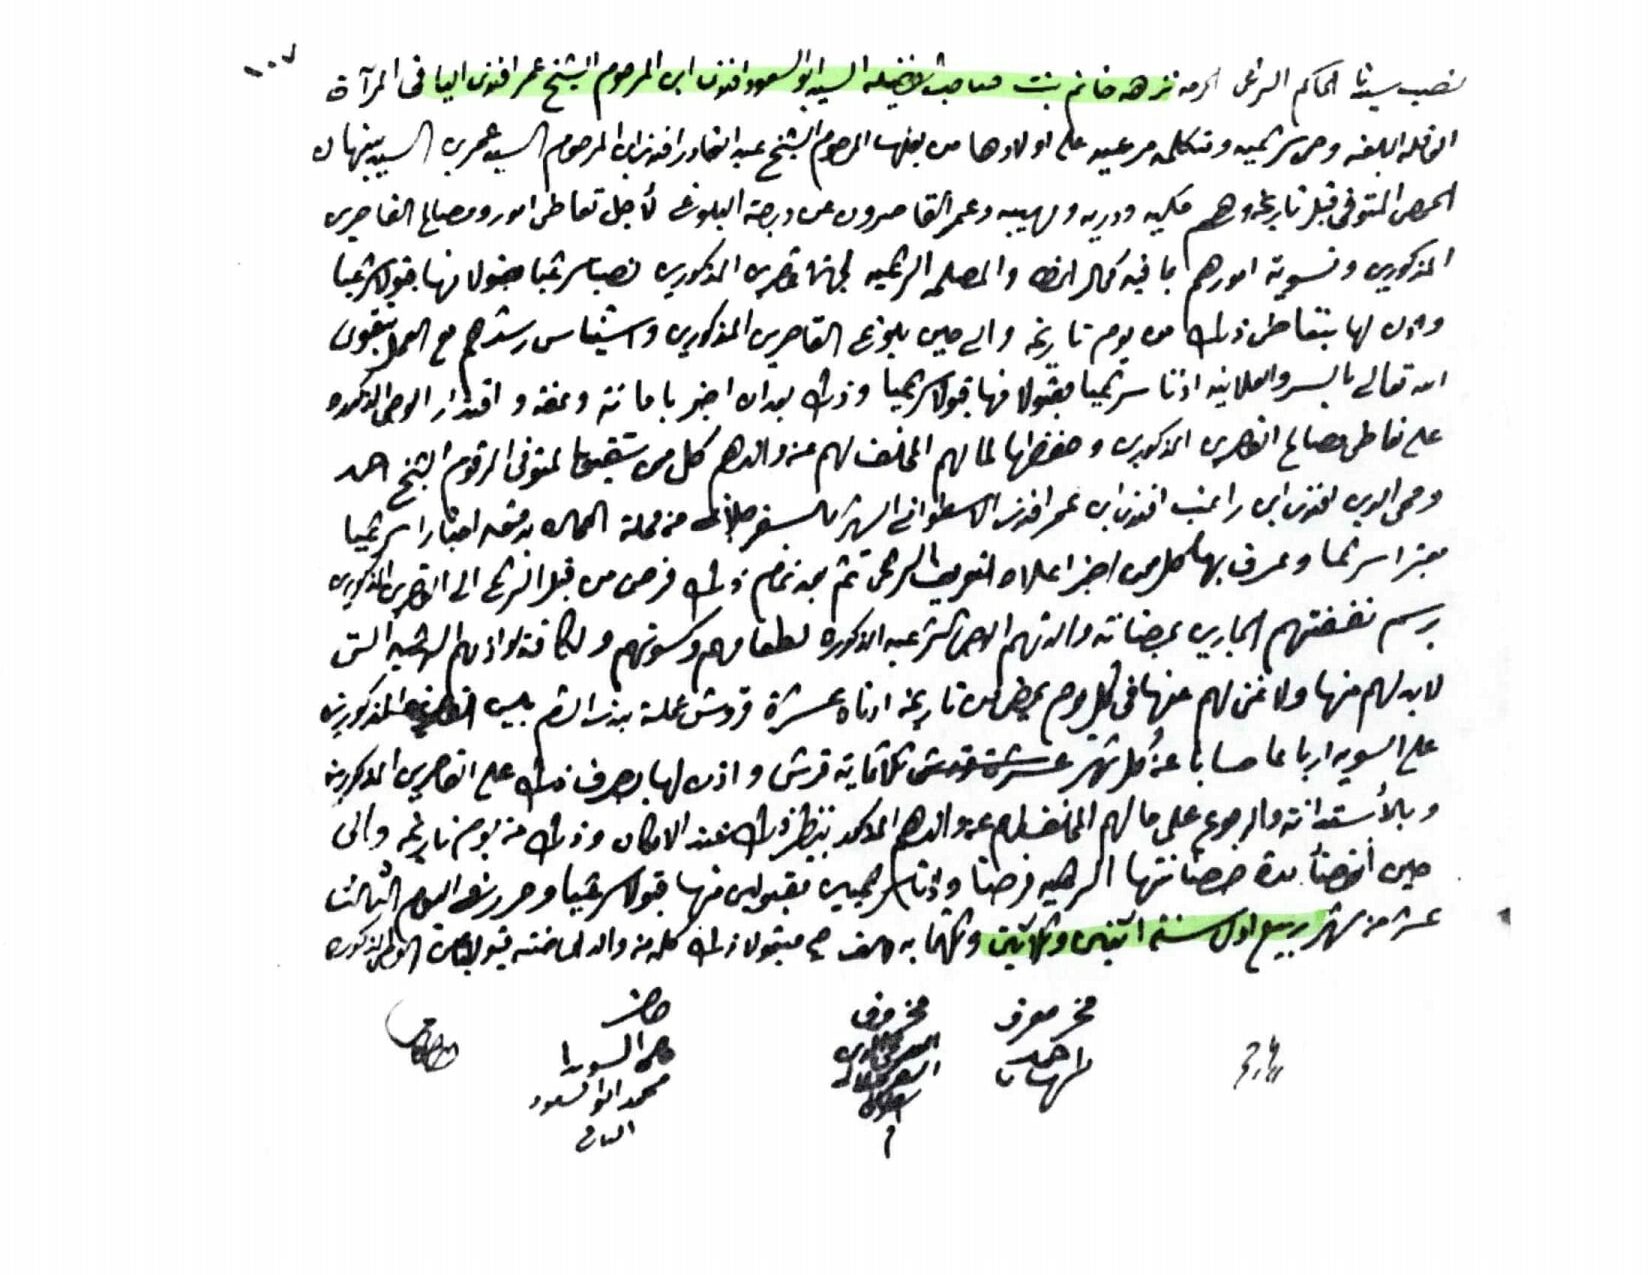 نصب سيدنا الحاكم الشرعي الحرمه نزهه خانم بنت صاحب الفضيله السيد ابو السعود افندي ابن المرحوم الشيخ عمر افندي اليافي المرآة
العاقله البالغه وصي شرعيه ومتكلمه مرعيه على اولادها من بعلها المرحوم الشيخ عبد القادر افندي ابن المرحوم السيد عمري السيد نبهان
الحمصي المتوفى قبل تاريخه وهم ودريه ووهيبه وعمر القاصرون عن درجة البلوغ لأجل تعاطي امور ومصالح القاصرين
المذكورين وتسوية امورهم بما فيه كمال الحظ والمصلحه الشرعيه لجهة القاصرين المذكورين نصبا شرعيا مقبولا منها قبولا شرعيا
واذن لها بتعاطي ذلك من يوم تاريخه والى حين بلوغ القاصرين المذكورين واستيناس رشدهم مع العمل بتقوى
الله تعالى بالسر والعلانيه اذنا شرعيا مقبولا منها قبولا شرعيا وذلك بعد ان اخبر بامانة وعفة واقتدار الوصي المذكوره
على تعاطي مصالح القاصرين المذكورين وحفظها لمالهم المخلف لهم عن والدهم كل من شقيق المتوفى المرقوم الشيخ احمد
ومحي الدين افندي ابن راغب افندي ابن عمر افندي الاسطواني الشهير من محلة بدمشق اخبارا شرعيا
معتبرا شرعا وعرف بها كل من اخبر اعلاه التعريف الشرعي ثم بعد تمام ذلك فرض من قبل الشرع الى القاصرين المذكورين
برسم نفقتهم الجاري بحضانة والدتهم الوصي الشرعيه المذكوره لطعامهم وكسوتهم ولكافة لوازمهم الشرعيه التي
لابد لهم منها ولا غنى لهم عنها في كل يوم يمضي من تاريخه ادناه عشرة قروش عملة بندر الشام بين القاصرين المذكورين
على السويه ارباعا حسابا عن كل شهر ثلاثماية قرش واذن لها بصرف ذلك على القاصرين المذكورين
وبالأستدانة والرجوع على مالهم المخلف لهم عن والدهم المذكور بنظير ذلك عند الامكان وذلك من يوم تاريخه والى
حين أنقضأ مدة حضانتها الشرعيه فرضا واذنا شرعيين مقبولين منها قبولا شرعيا وحرر في اليوم الثالث
عشر من شهر ربيع اول سنة اثنين وثلاثين وثلثمايه والف صح مقبولا ذلك كله من والد الحاضنه الوصي المذكوره
مخبر معرف
احمد
نبهان
مخبر معرف
حاضر
محمد ابو السعود
اليافي